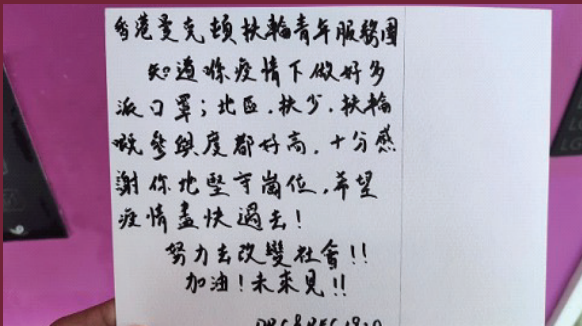 香港曼克頓扶輪青年服務團
知道你疫情下做好多
派口罩；北區、扶少、扶輪
嘅參與度都好高，十分感
謝你地堅守崗位，希望
疫情盡快過去！
努力去改變社會！！
加油！未來見！！